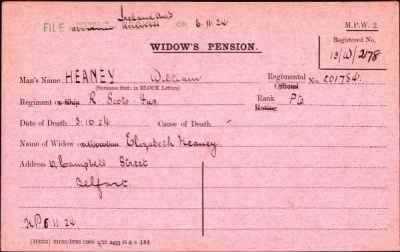 Ireland
FILE OPENED IN ON 6.11.24
M.P.W. 2.
WIDOW'S PENSION.
Registered No.
13/W/2178
Man's Name HEANEY William
(Surname first: in BLOCK Letters)
Regimental Official No. 201784.
Regiment or Ship R. Scots Fus.
Rank Rating Pte
Date of Death 3.10.24 Cause of Death
Name of Widow Elizabeth Heaney.
Address Campbell Street
Belfast.
N.P. 6.11.24